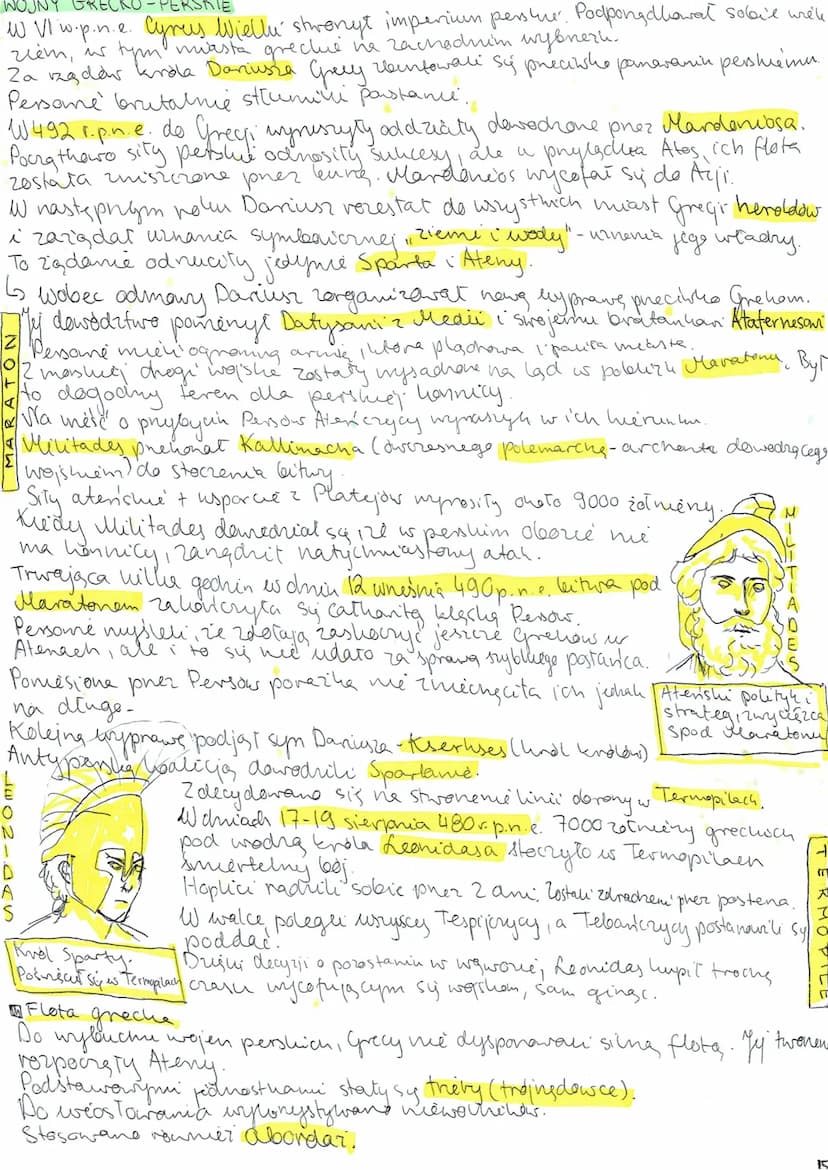 WOJNY GRECKO-PERSKIE
W VI w p.n.e. Cyrus Wielki stworzył imperium perskie. Podporządkował sobie wiele
ziem, w tym miasta greckie na zachodnim wybrzeżu.
Za rządów króla Dariusza Grecy zbuntowali się przeciwko panowaniu perskiemu.
Persowie brutalnie stłumili powstanie.
W 492 r.p.n.e. do Grecji wyruszyły oddziały dowodzone przez Mardoniosa.
Początkowo siły perskie odnosiły sukcesy, ale u przylądka Atos, ich flota
została zniszczona przez burzę. Mardonios wycofał się do Azji.
W następnym roku Dariusz rozesłał do wszystkich miast Grecji heroldów
i zażądał uznania symbolicznej „ziemi i wody" - uznania jego władzy.
To żądanie odrzuciły jedynie Sparta i Ateny.
↳ Wobec odmowy Dariusz zorganizował nową wyprawę przeciwko Grekom.
Jej dowództwo powierzył Datysowi z Medii i swojemu bratankowi Atafernesowi
MARATON
Persowie mieli ogromną armię, która plądrowała i paliła miasta.
Z morskiej drogi wojska zostały wysadzone na ląd w pobliżu Maratonu. Był
to dogodny teren dla perskiej konnicy.
Na wieść o przybyciu Persów Ateńczycy wyruszyli w ich kierunku.
Militades przekonał Kallimacha (ówczesnego polemarchę - archonta dowodzącego
wojskiem) do stoczenia bitwy.
Siły ateńskie + wsparcie z Platejów wynosiły około 9000 żołnierzy.
Kiedy Militades dowiedział się, że w perskim obozie nie
ma konnicy, zarządził natychmiastowy atak.
Trwająca kilka godzin w dniu 12 września 490 p.n.e. bitwa pod
Maratonem zakończyła się całkowitą klęską Persów.
Persowie myśleli, że zdołają zaskoczyć jeszcze Greków w
Atenach, ale i to się nie udało za sprawą szybkiego posłańca.
Poniesiona przez Persów porażka nie zniechęciła ich jednak
na długo.
MILITIADES
Ateński polityk i
strateg, zwycięzca
spod Maratonu
Kolejną wyprawę podjął syn Dariusza - Kserkses (król królów)
Antyperską koalicją dowodzili Spartanie.
Zdecydowano się na stworzenie linii obrony w Termopilach.
W dniach 17-19 sierpnia 480 r.p.n.e. 7000 żołnierzy greckich
pod wodzą króla Leonidasa stoczyło w Termopilach
śmiertelny bój.
Hoplici radzili sobie przez 2 dni. Zostali zdradzeni przez pasterza.
W walce polegli wszyscy Tespijczycy, a Tebańczycy postanowili się
poddać.
Dzięki decyzji o pozostaniu w wąwozie, Leonidas kupił trochę
czasu wycofującym się wojskom, sam ginąc.
LEONIDAS
Król Sparty.
Poświęcił się w Termopilach
TERMOPILE
Flota grecka
Do wybuchu wojen perskich, Grecy nie dysponowali silną flotą. Jej tworzenie
rozpoczęły Ateny.
Podstawowymi jednostkami stały się triery (trójrzędowce).
Do wiosłowania wykorzystywano niewolników.
Stosowano również abordaż.
15